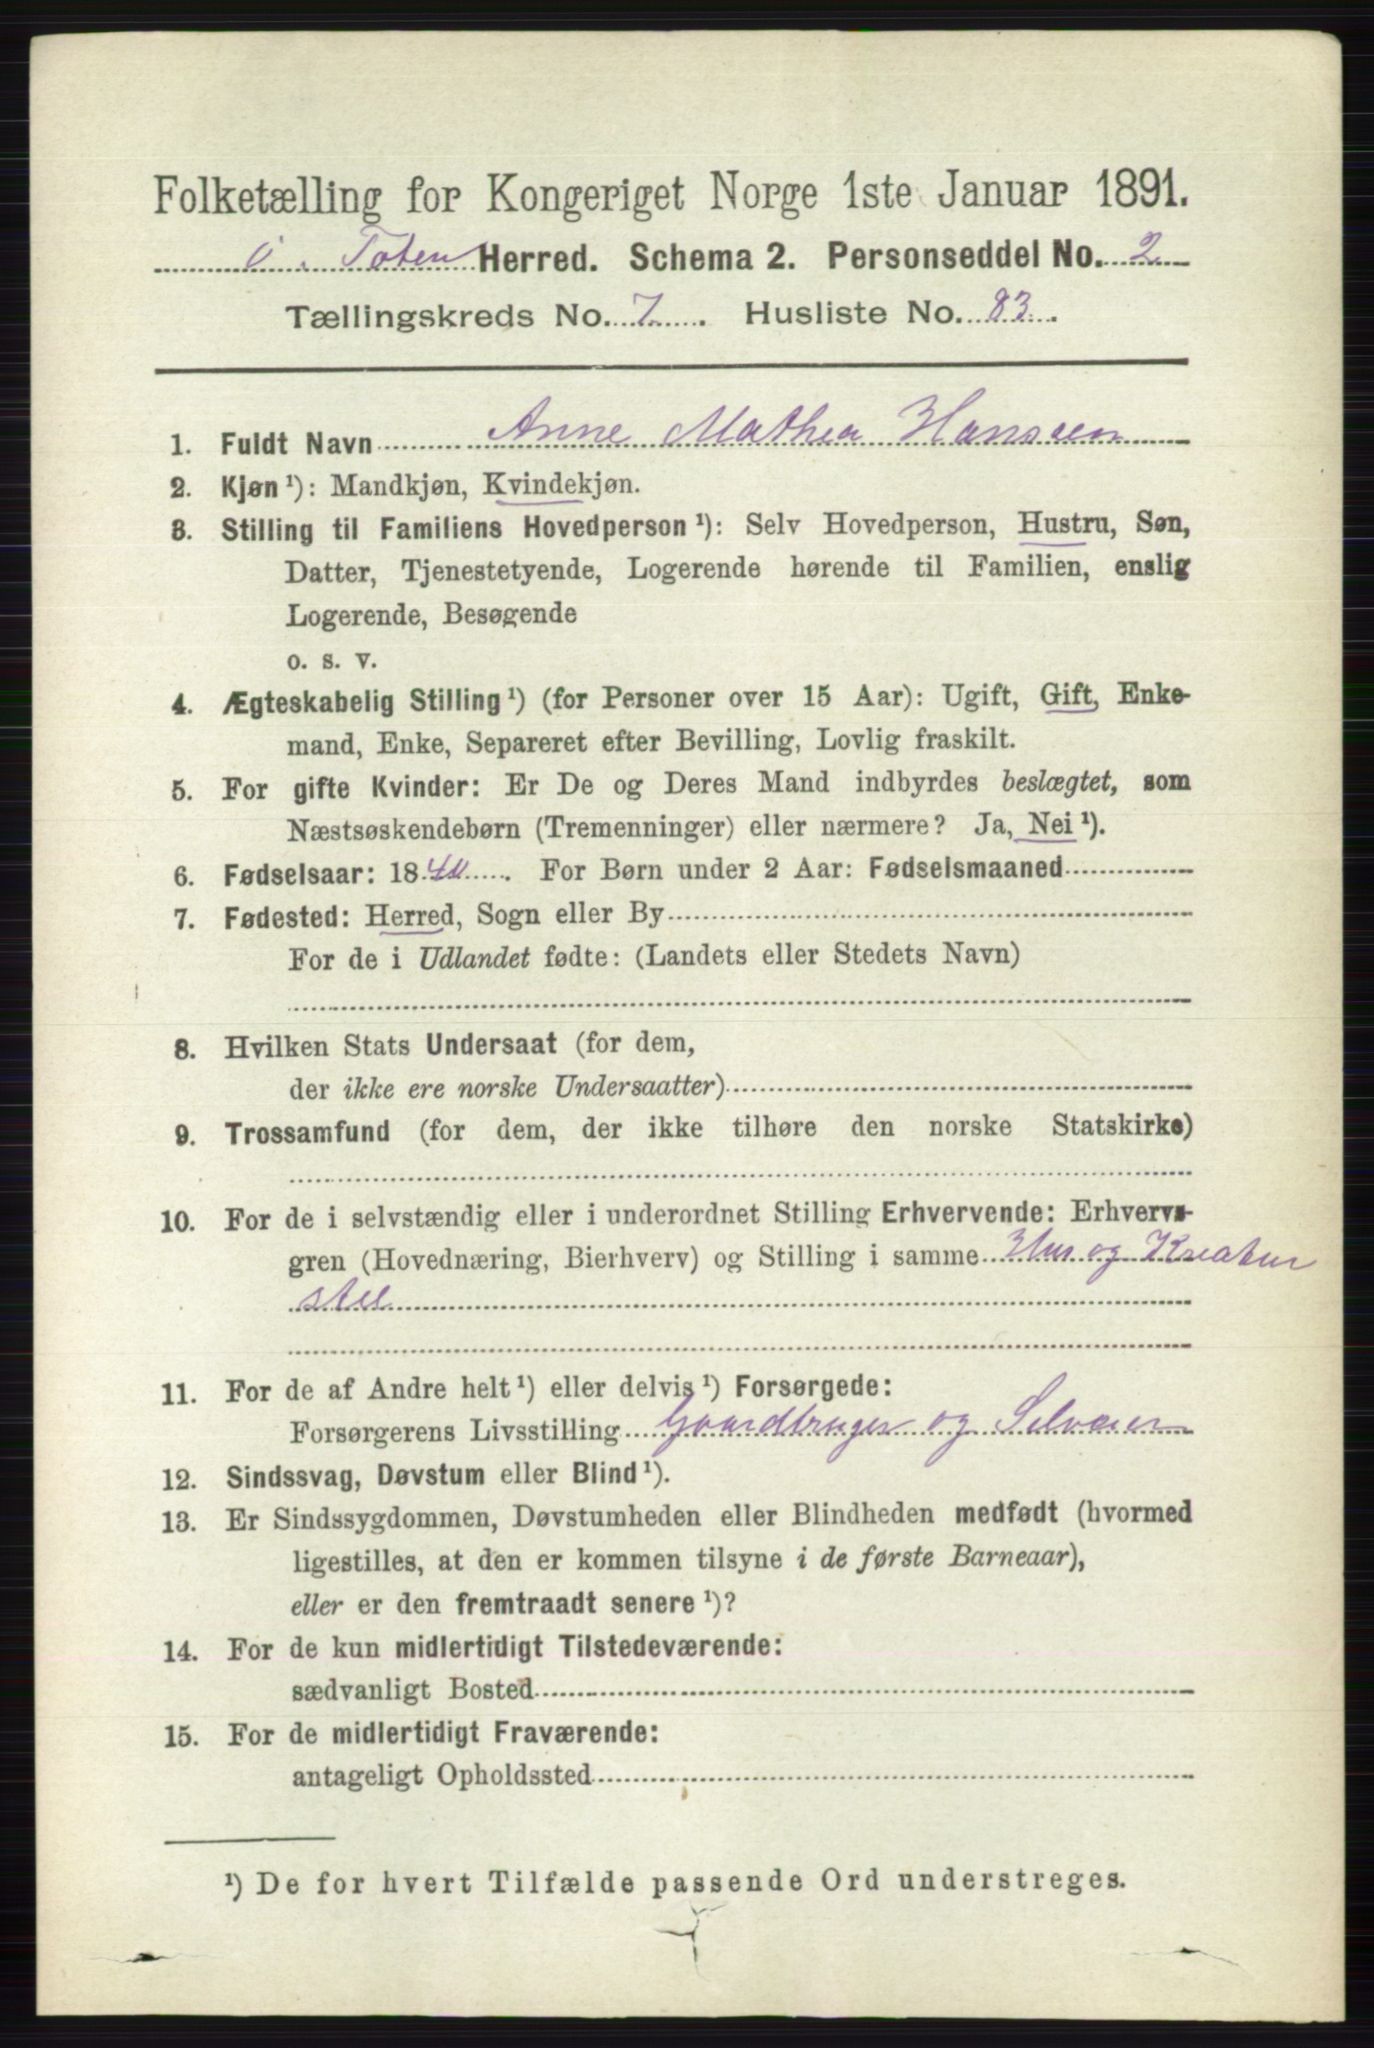 Folketælling for Kongeriget Norge 1ste Januar 1891.
Ö. Toten Herred. Schema 2. Personseddel No. 2
Tællingskreds No. 7. Husliste No. 83.
1. Fuldt Navn Anne Mathea Hanssen
2. Kjøn¹): Mandkjøn, Kvindekjøn.
3. Stilling til Familiens Hovedperson¹): Selv Hovedperson, Hustru, Søn,
Datter, Tjenestetyende, Logerende hørende til Familien, enslig
Logerende, Besøgende
o. s. v.
4. Ægteskabelig Stilling¹) (for Personer over 15 Aar): Ugift, Gift, Enke-
mand, Enke, Separeret efter Bevilling, Lovlig fraskilt.
5. For gifte Kvinder: Er De og Deres Mand indbyrdes beslægtet, som
Næstsøskendebørn (Tremenninger) eller nærmere? Ja, Nei¹).
6. Fødselsaar: 1840. For Børn under 2 Aar: Fødselsmaaned
7. Fødested: Herred, Sogn eller By
For de i Udlandet fødte: (Landets eller Stedets Navn)
8. Hvilken Stats Undersaat (for dem,
der ikke ere norske Undersaatter)
9. Trossamfund (for dem, der ikke tilhøre den norske Statskirke)
10. For de i selvstændig eller i underordnet Stilling Erhvervende: Erhvervs-
gren (Hovednæring, Bierhverv) og Stilling i samme Hus og Kreatur
stel
11. For de af Andre helt¹) eller delvis¹) Forsørgede:
Forsørgerens Livsstilling Gaardbruger og Selveier
12. Sindssvag, Døvstum eller Blind¹).
13. Er Sindssygdommen, Døvstumheden eller Blindheden medfødt (hvormed
ligestilles, at den er kommen tilsyne i de første Barneaar),
eller er den fremtraadt senere¹)?
14. For de kun midlertidigt Tilstedeværende:
sædvanligt Bosted
15. For de midlertidigt Fraværende:
antageligt Opholdssted
¹) De for hvert Tilfælde passende Ord understreges.